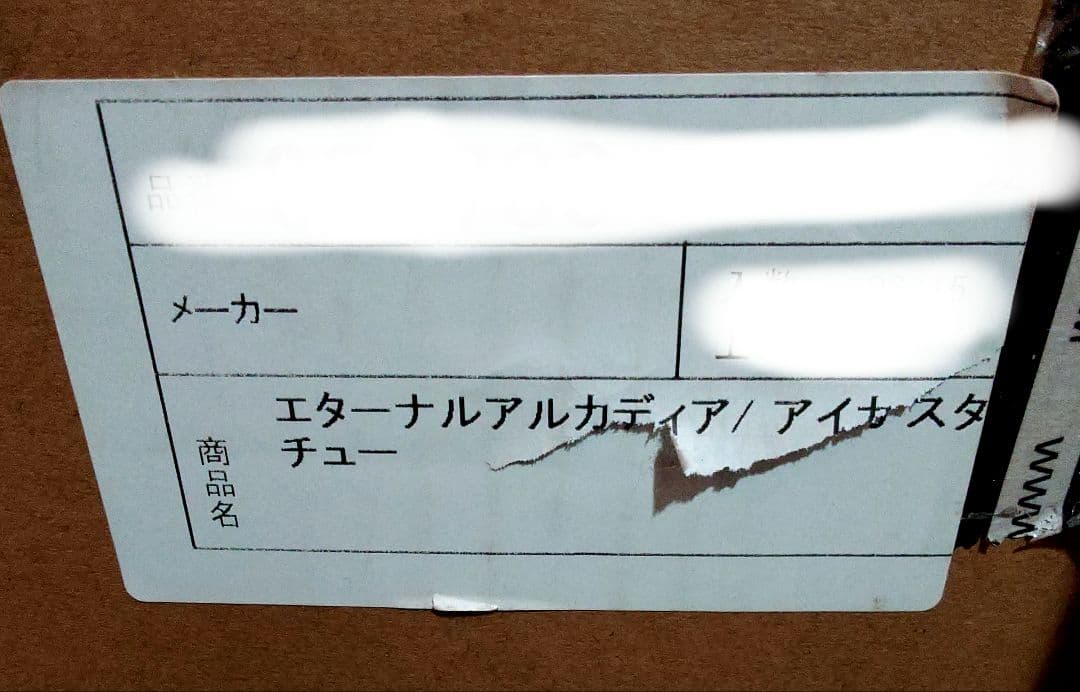 品
メーカー
エターナルアルカディア/ アイカ スタ
チュー
商品名